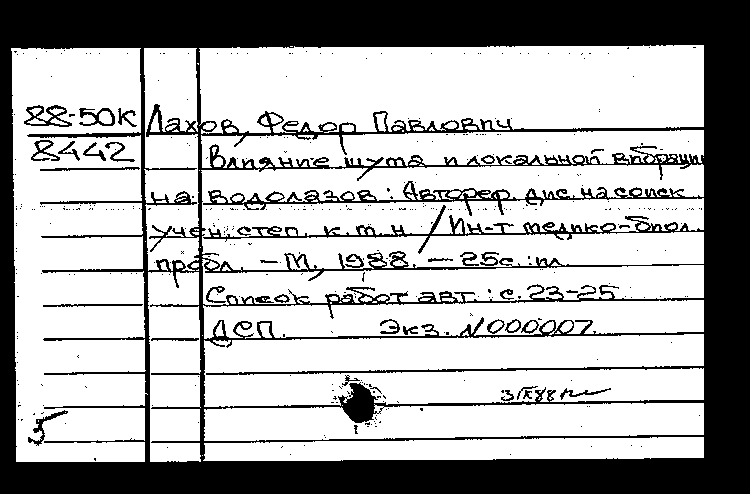 88-50К Лахов, Федор Павлович
8442 Влияние шума и локальной вибрации
на водолазов : Автореф. дис. на соиск
учен. степ. к. т. н. / Ин-т медико-биол.
пробл. – М., 1988. – 25с. : ил
Список работ авт. : с. 23-25
ДСП. Экз. N000007.
3 IX 88
5